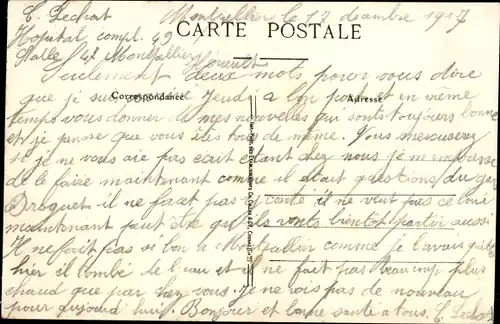 E. Lechat Montpellier le 17 décembre 1917
Hopital compl. 49
CARTE POSTALE
Salle Montpellier Hérault
Seulement deux mots pour vous dire
que je suis Jeudi a bon port et en même
Correspondance Adresse
temps vous donner de mes nouvelles qui sont toujours bonne
et je panse que vous êtes tous de même. Vous mescuserez
si je ne vous ais pas écrit étant chez nous je m'empresse
de le faire maintenant comme il était questions du
Droguet il ne faret pas il ne veut pas ce
maintenant peut être qu'ils vonts bientot partir aussi
Il ne fait pas si bon a Montpellier comme je l'avais
hier il tombé de l'eau et il ne fait pas beaucoup plus
chaud que par chez vous Je ne vois pas de nouveau
pour aujourd hui. Bonjour et bonne santé a tous. E. Lechat